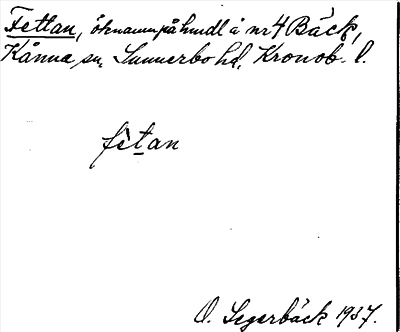 Fettan, öknamn på hmdl å nr 4 Bäck,
Kånna sn, Sunnerbo hd, Kronob. l.
fètan
O. Segerbäck 1937.